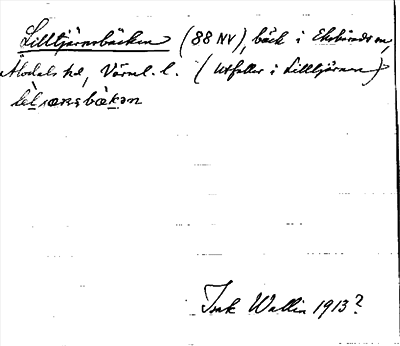 Lilltjärnsbäcken (88 NV), bäck i Ekshärads sn,
Älvdals hd, Värml. l. (Utfaller i Lilltjärnen)
Isak Wallin 1913?